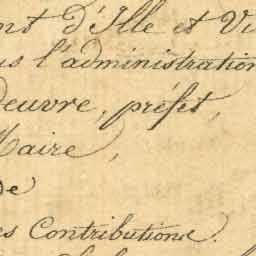 nt d'Ille et Vi
us l'administration
deuvre, préfet,
Maire,
de
es Contributions.